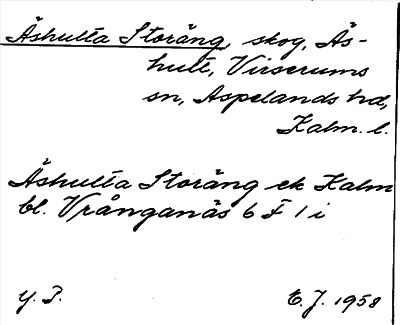 Äshulta Storäng, skog, Äs-
hult, Virserums
sn, Aspelands hd,
Kalm. l.
Äshulta Storäng ek Kalm
bl. Vrånganäs 6 F 1 i
Y. P. E. J. 1958